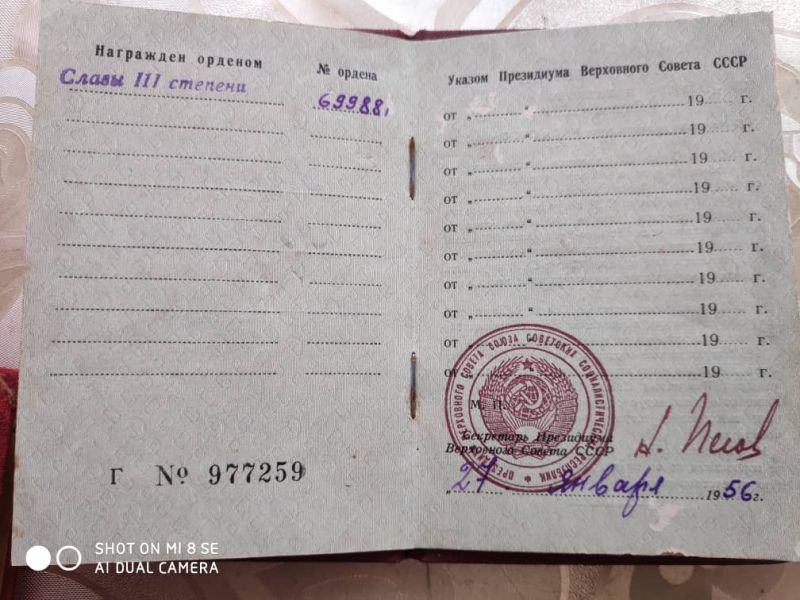 Награжден орденом
№ ордена
Славы III степени
69988
Г № 977259
Указом Президиума Верховного Совета СССР
от „ “ 19 г.
от „ “ 19 г.
от „ “ 19 г.
от „ “ 19 г.
от „ “ 19 г.
от „ “ 19 г.
от „ “ 19 г.
от „ “ 19 г.
от „ “ 19 г.
от „ “ 19 г.
М. П.
Секретарь Президиума
Верховного Совета СССР
„27 Января 1956 г.
ВЕРХОВНОГО СОВЕТА СОЮЗА СОВЕТСКИХ СОЦИАЛИСТИЧЕСКИХ РЕСПУБЛИК
SHOT ON MI 8 SE
AI DUAL CAMERA